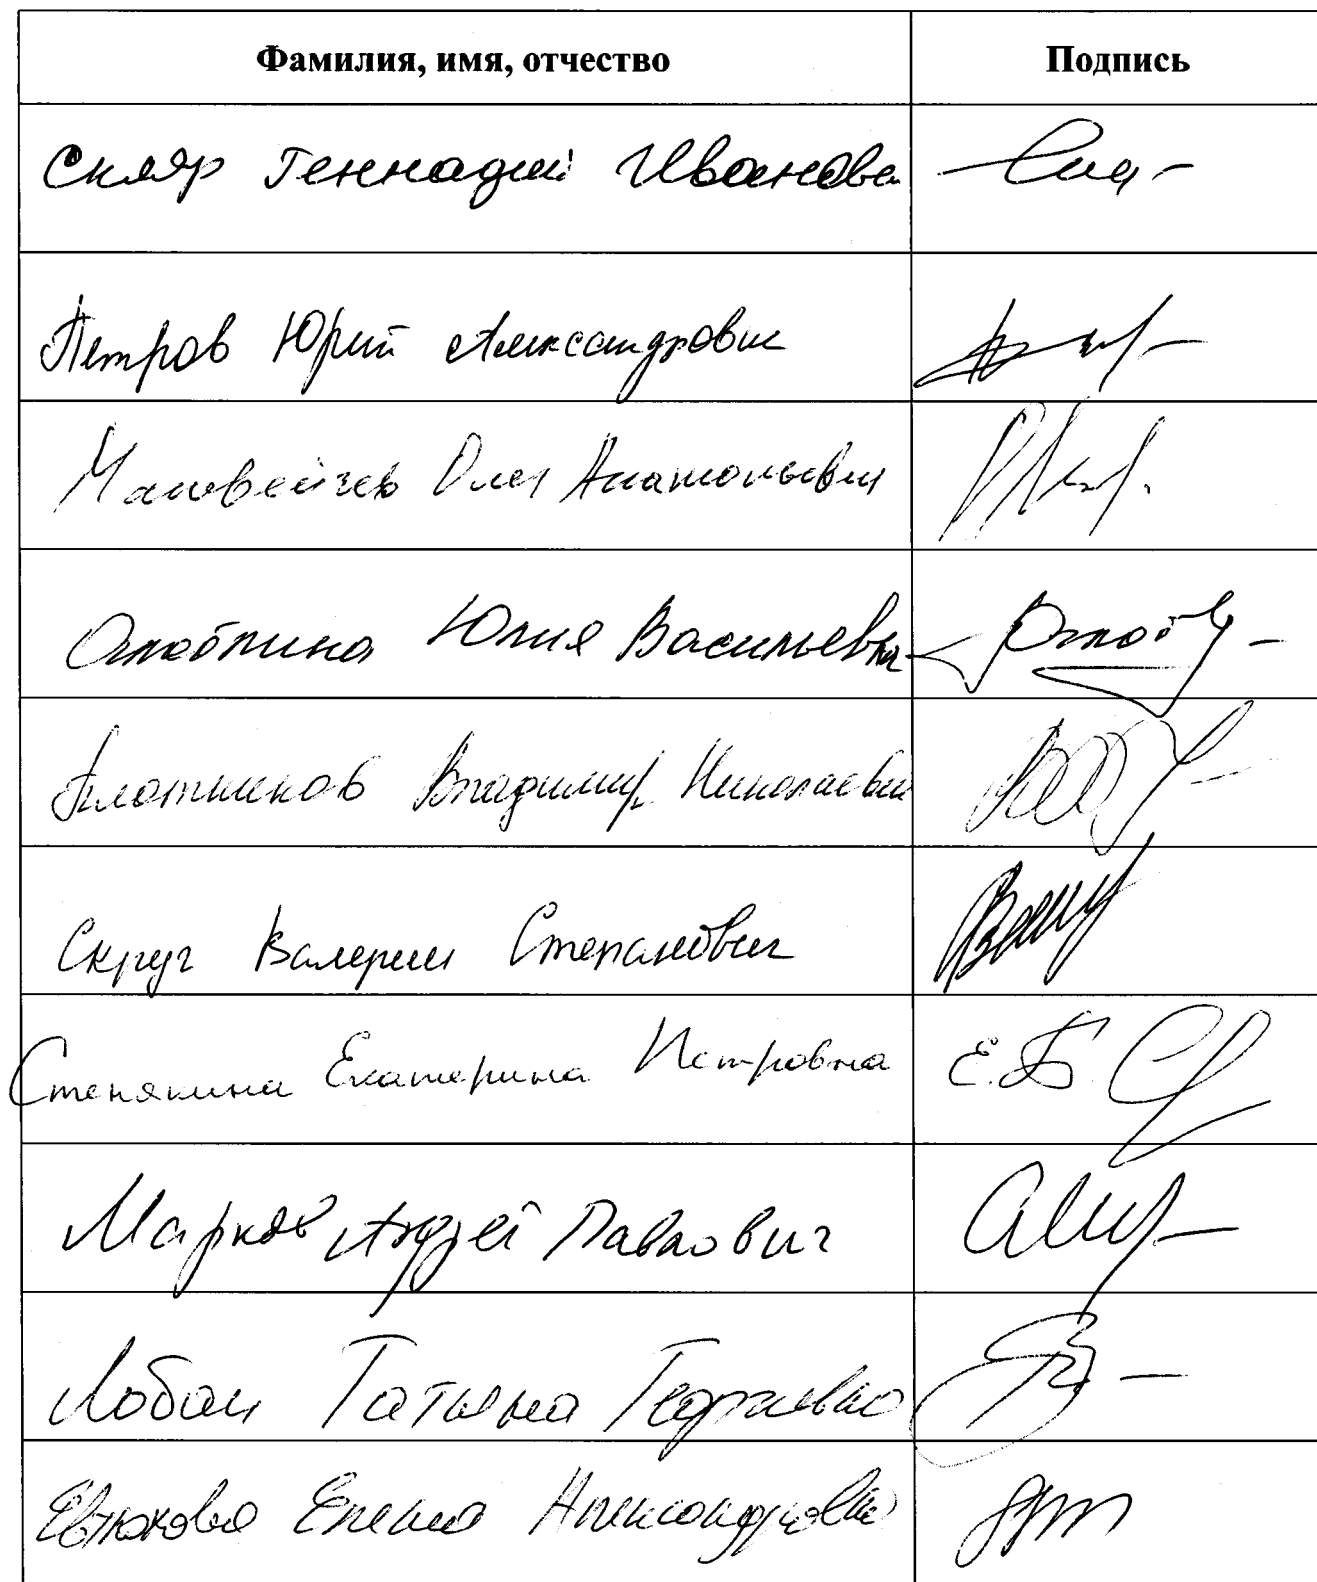 Фамилия, имя, отчество Подпись
Скляр Геннадий Иванови
Петров Юрий Александрович
Матвейчев Олег Анатольевич
Юлия Васильевна
Плотников Владимир Николаевич
Скруг Валерий Степанович
Стенякина Екатерина Петровна
Марков Андрей Павлович
Лобач Татьяна Георгиевна
Евтюхова Елена Александровна